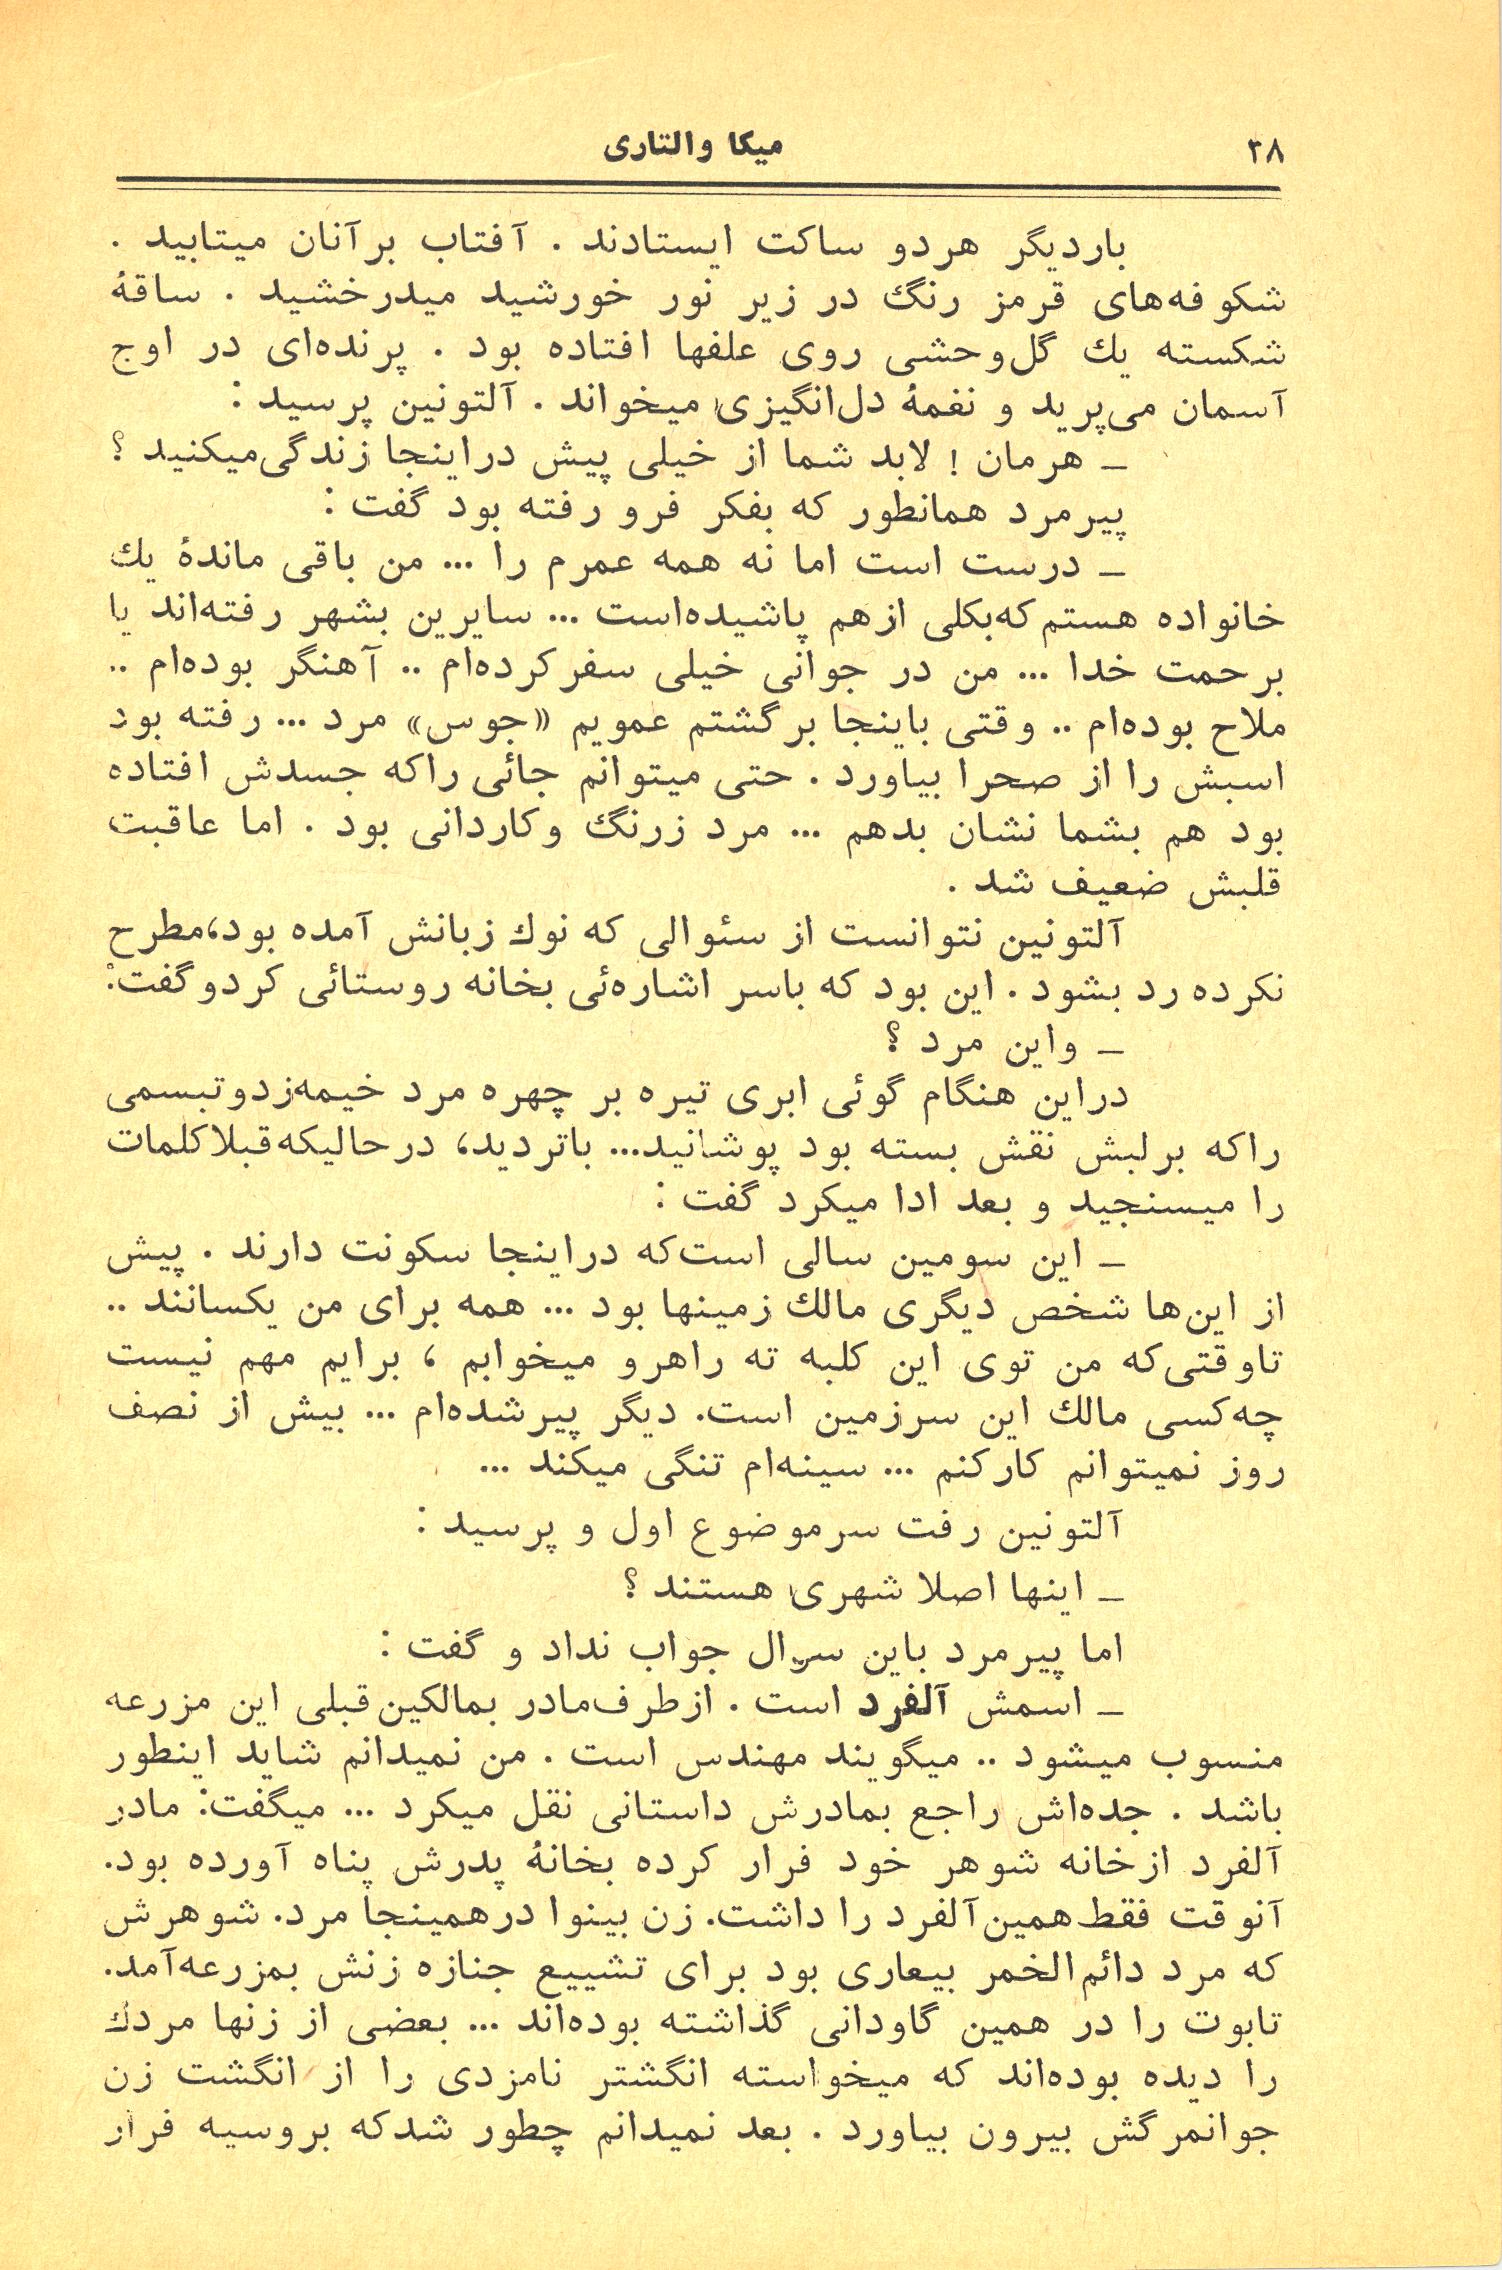 ۳۸
میکا والتاری
باردیگر هردو ساکت ایستادند . آفتاب برآنان میتابید .
شکوفه‌های قرمز رنگ در زیر نور خورشید میدرخشید . ساقهٔ
شکسته یك گل‌وحشی روی علفها افتاده بود . پرنده‌ای در اوج
آسمان می‌پرید و نغمهٔ دل‌انگیزی میخواند . آلتونین پرسید :
ــ هرمان ! لابد شما از خیلی پیش دراینجا زندگی‌میکنید ؟
پیرمرد همانطور که بفکر فرو رفته بود گفت :
ــ درست است اما نه همه عمرم را ... من باقی ماندهٔ یك
خانواده هستم که‌بکلی ازهم پاشیده‌است ... سایرین بشهر رفته‌اند یا
برحمت خدا ... من در جوانی خیلی سفرکرده‌ام .. آهنگر بوده‌ام ..
ملاح بوده‌ام .. وقتی باینجا برگشتم عمویم «جوس» مرد ... رفته بود
اسبش را از صحرا بیاورد . حتی میتوانم جائی راکه جسدش افتاده
بود هم بشما نشان بدهم ... مرد زرنگ وکاردانی بود . اما عاقبت
قلبش ضعیف شد .
آلتونین نتوانست از سئوالی که نوك زبانش آمده بود، مطرح
نکرده رد بشود . این بود که باسر اشاره‌ئی بخانه روستائی کردوگفت:
ــ واین مرد ؟
دراین هنگام گوئی ابری تیره بر چهره مرد خیمه‌زدوتبسمی
راکه برلبش نقش بسته بود پوشانید... باتردید، درحالیکه‌قبلاکلمات
را میسنجید و بعد ادا میکرد گفت :
ــ این سومین سالی است‌که دراینجا سکونت دارند . پیش
از این‌ها شخص دیگری مالك زمینها بود ... همه برای من یکسانند ..
تاوقتی‌که من توی این کلبه ته راهرو میخوابم ، برایم مهم نیست
چه‌کسی مالك این سرزمین است. دیگر پیرشده‌ام ... بیش از نصف
روز نمیتوانم کارکنم ... سینه‌ام تنگی میکند ...
آلتونین رفت سرموضوع اول و پرسید :
ــ اینها اصلا شهری هستند ؟
اما پیرمرد باین سؤال جواب نداد و گفت :
ــ اسمش آلفرد است . ازطرف‌مادر بمالکین‌قبلی این مزرعه
منسوب میشود .. میگویند مهندس است . من نمیدانم شاید اینطور
باشد . جده‌اش راجع بمادرش داستانی نقل میکرد ... میگفت: مادر
آلفرد ازخانه شوهر خود فرار کرده بخانهٔ پدرش پناه آورده بود.
آنوقت فقط‌همین‌آلفرد را داشت. زن بینوا درهمینجا مرد. شوهرش
که مرد دائم‌الخمر بیعاری بود برای تشییع جنازه زنش بمزرعه‌آمد.
تابوت را در همین گاودانی گذاشته بوده‌اند ... بعضی از زنها مردك
را دیده بوده‌اند که میخواسته انگشتر نامزدی را از انگشت زن
جوانمرگش بیرون بیاورد . بعد نمیدانم چطور شدکه بروسیه فرار